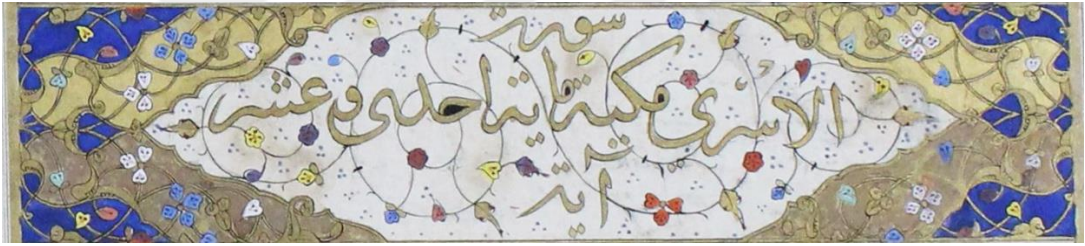 سورة
الاسرى مكية ماية احدى و عشر
اية